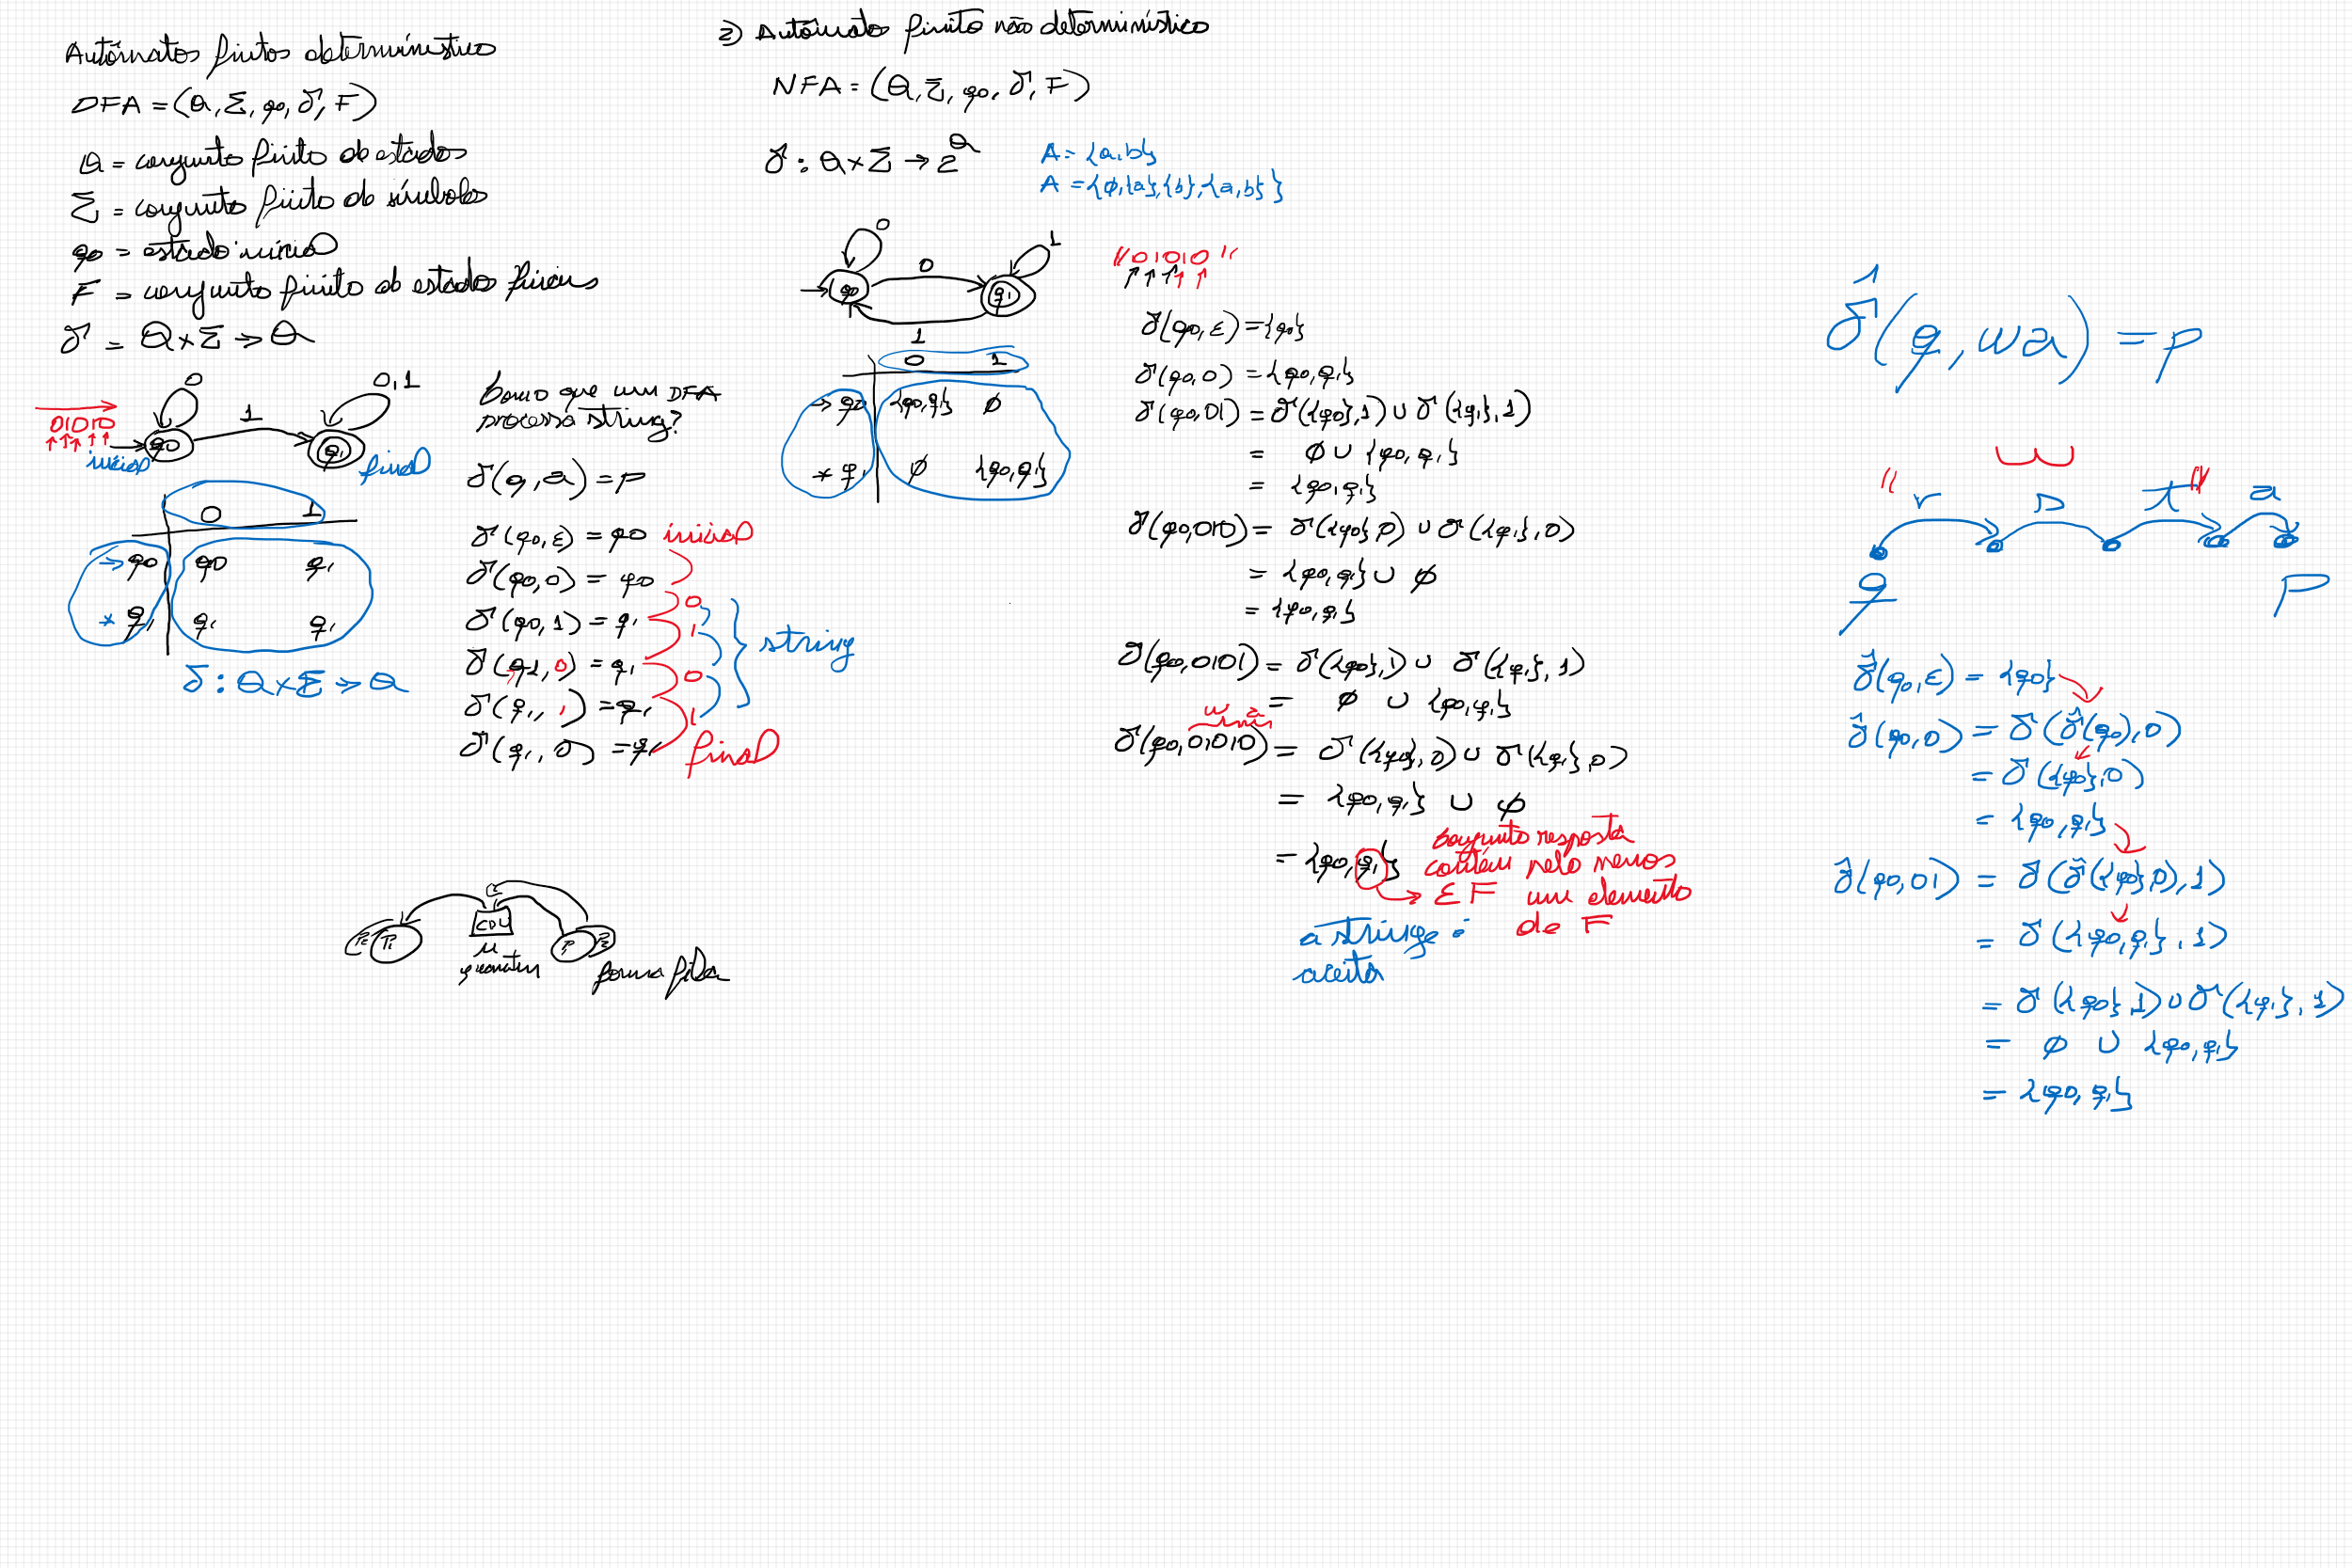 Autômatos finitos determinístico
DFA = (Q, Σ, q0, δ, F)
Q = conjunto finito de estados
Σ = conjunto finito de símbolos
q0 = estado inicial
F = conjunto finito de estado finais
δ = Q x Σ → Q
0
1
0,1
01010
q0
q1
inicial
final
0 1
→ q0 q0 q1
* q1 q1 q1
δ : Q x Σ → Q
Como que um DFA
processa string?
δ(q, a) = p
δ(q0, ε) = q0 inicial
δ(q0, 0) = q0
δ(q0, 1) = q1 0
δ(q1, 0) = q1 1
δ(q1, 1) = q1 0
δ(q1, 0) = q1 1
final
string
P2 P1
CPU
P1 P2
2) Autômato finito não determinístico
NFA = (Q, Σ, q0, δ, F)
δ : Q x Σ → 2^Q
A = {a, b}
A = {ϕ, {a}, {b}, {a, b}}
0
0
1
1
q0
q1
0 1
→ q0 {q0, q1} ϕ
* q1 ϕ {q0, q1}
"01010"
δ(q0, ε) = {q0}
δ(q0, 0) = {q0, q1}
δ(q0, 01) = δ({q0}, 1) ∪ δ({q1}, 1)
= ϕ ∪ {q0, q1}
= {q0, q1}
δ(q0, 010) = δ({q0}, 0) ∪ δ({q1}, 0)
= {q0, q1} ∪ ϕ
= {q0, q1}
δ(q0, 0101) = δ({q0}, 1) ∪ δ({q1}, 1)
= ϕ ∪ {q0, q1}
w a
δ(q0, 01010) = δ({q0}, 0) ∪ δ({q1}, 0)
= {q0, q1} ∪ ϕ
= {q0, q1}
∈ F
Conjunto resposta
contém pelo menos
um elemento
de F
a string é
aceita
δ̂(q, wa) = p
w
" r s t " a
q p
δ̂(q0, ε) = {q0}
δ̂(q0, 0) = δ(δ̂(q0), 0)
= δ({q0}, 0)
= {q0, q1}
δ̂(q0, 01) = δ(δ̂({q0}, 0), 1)
= δ({q0, q1}, 1)
= δ({q0}, 1) ∪ δ({q1}, 1)
= ϕ ∪ {q0, q1}
= {q0, q1}